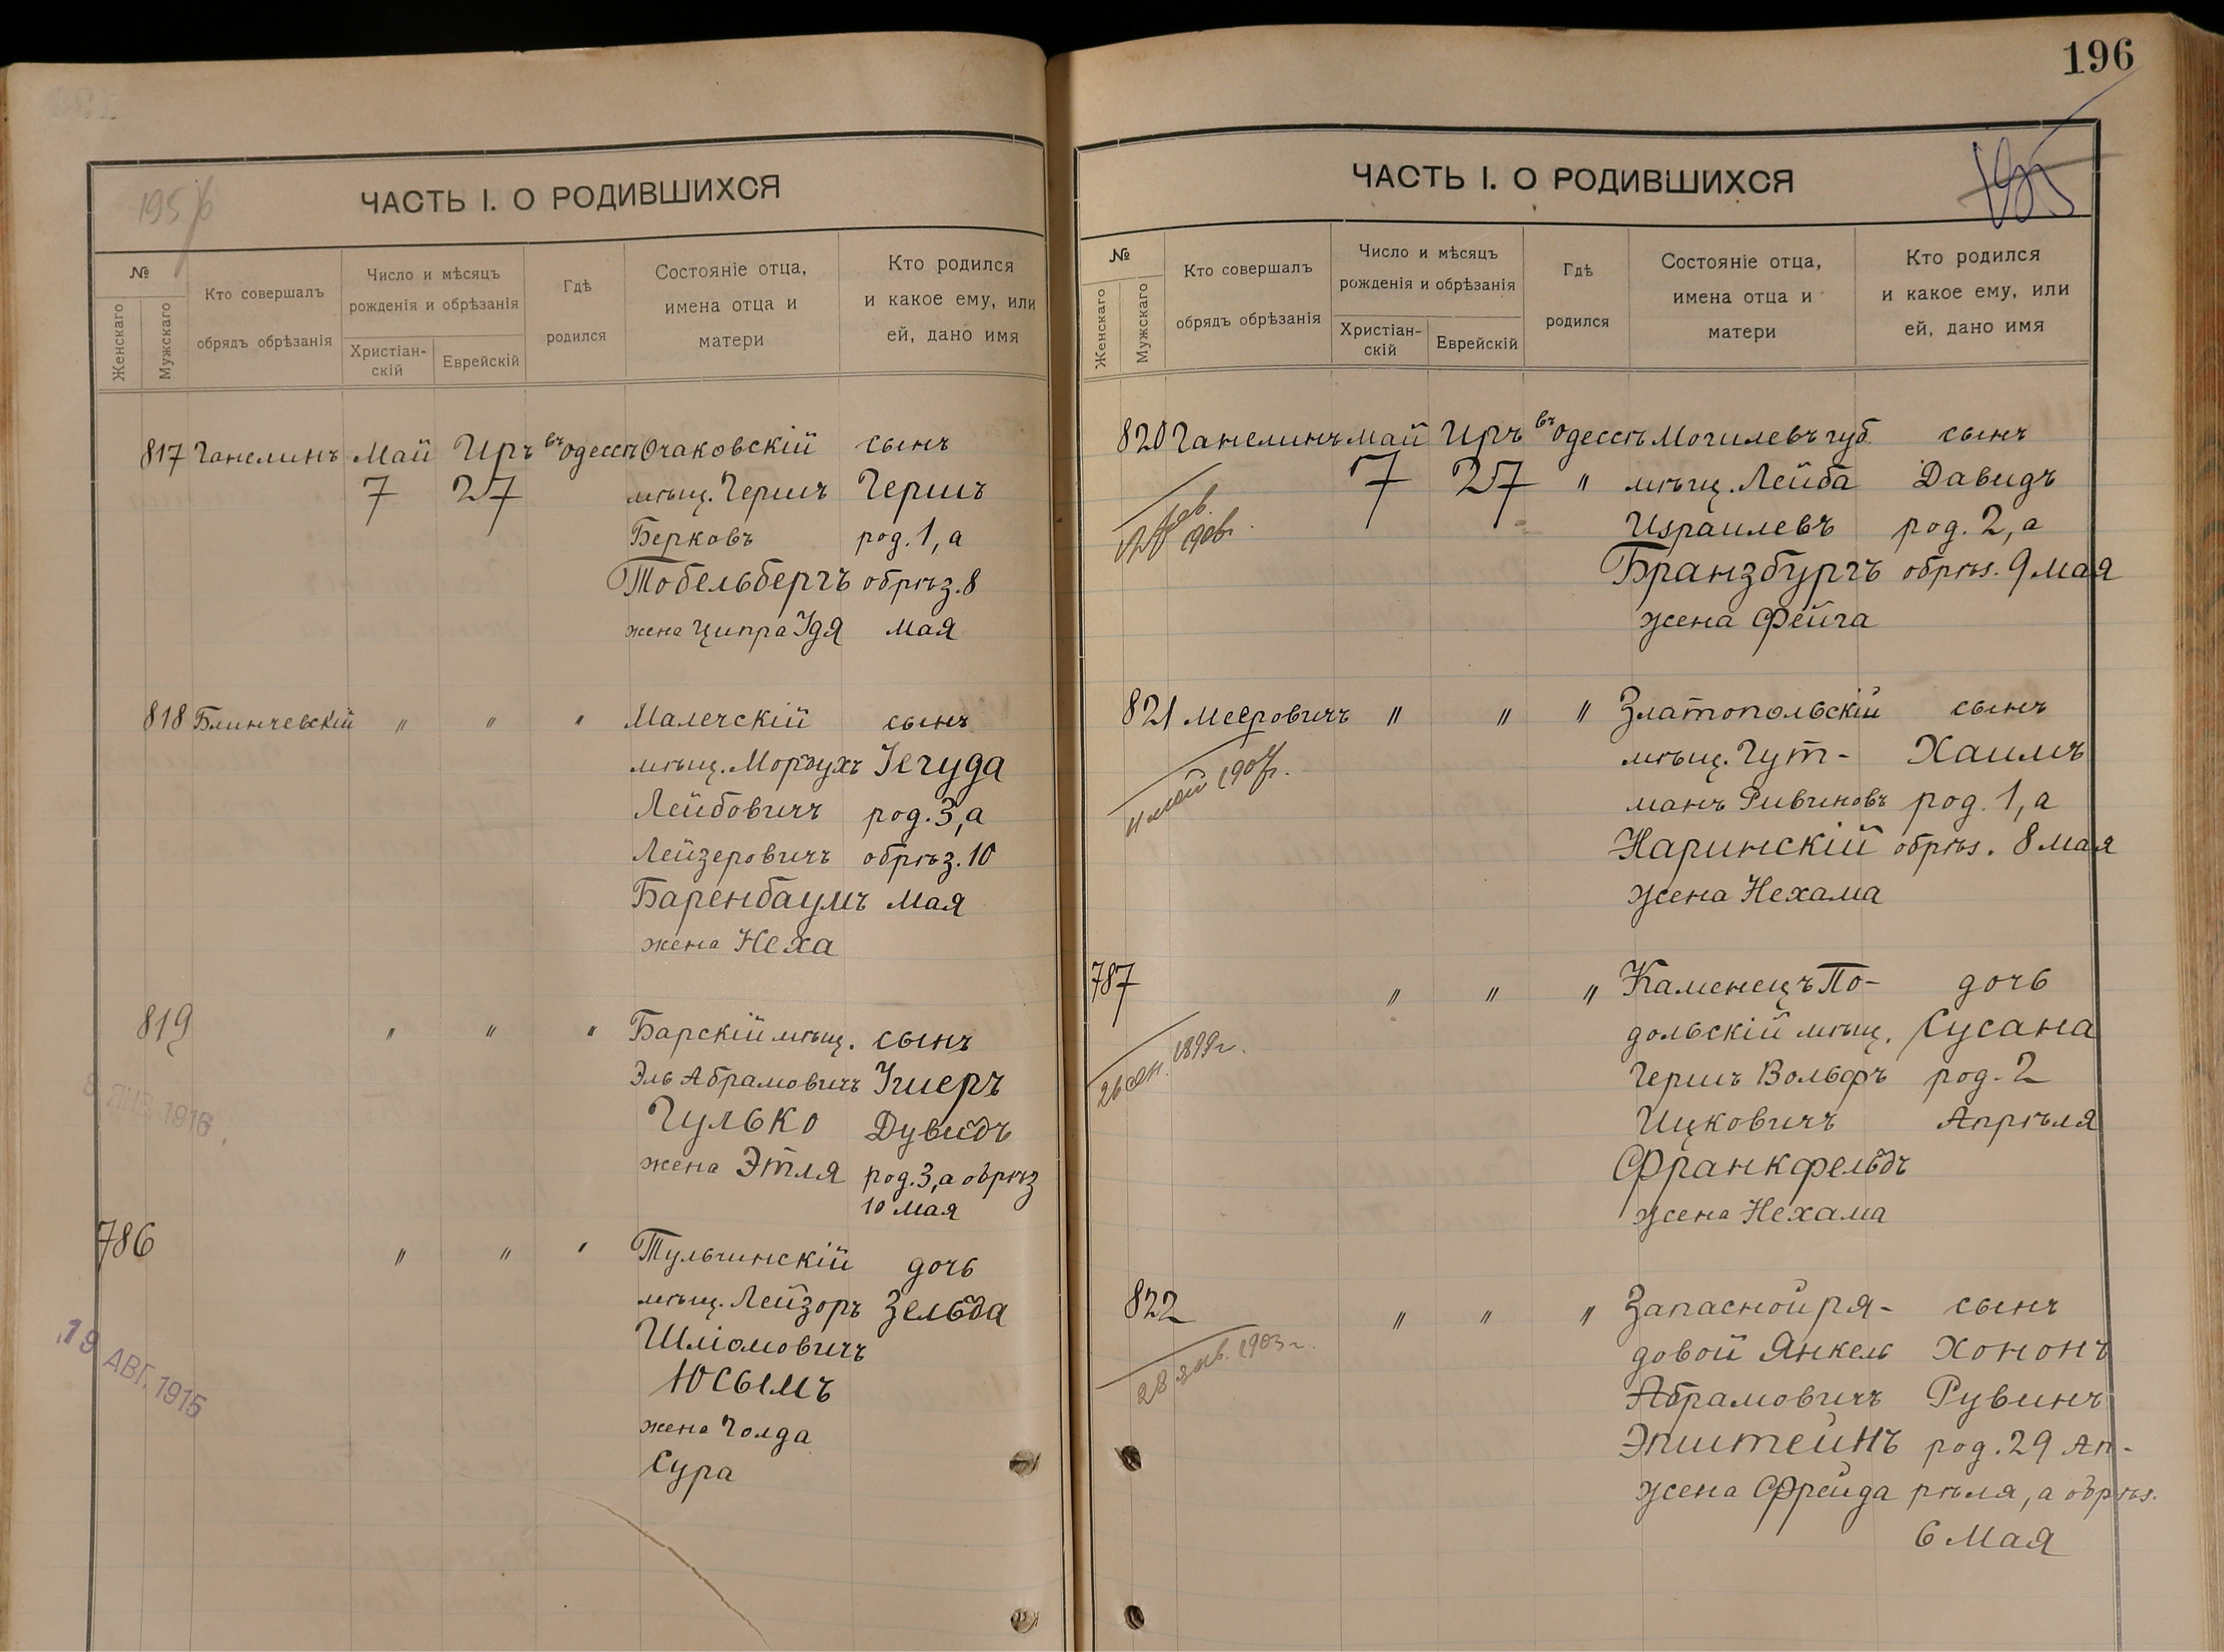 196
195
ЧАСТЬ I. О РОДИВШИХСЯ
№
Женскаго
Мужскаго
Кто совершалъ
обрядъ обрѣзанія
Число и мѣсяцъ
рожденія и обрѣзанія
Христіан-
скій
Еврейскій
Гдѣ
родился
Состояніе отца,
имена отца и
матери
Кто родился
и какое ему, или
ей, дано имя
817 Ганелинъ Май Иръ въ Одессѣ Очаковскій сынъ
7 27 мѣщ. Гершъ Гершъ
Берковъ род. 1, а
Тобельбергъ обрѣз. 8
жена Ципра Идя мая
818 Блинчевскій " " " Малечскій сынъ
мѣщ. Мордухъ Іегуда
Лейбовичъ род. 3, а
Лейзеровичъ обрѣз. 10
Баренбаумъ мая
жена Неха
819 " " " Барскій мѣщ. сынъ
Эль Абрамовичъ Ушеръ
Гулько Дувидъ
жена Этля род. 3, а обрѣз
10 мая
ЯНВ. 1916
786 " " " Тульчинскій дочь
мѣщ. Лейзоръ Зельда
Шліомовичъ
Юсымъ
жена Голда
Сура
19 АВГ. 1915
ЧАСТЬ I. О РОДИВШИХСЯ
№
Женскаго
Мужскаго
Кто совершалъ
обрядъ обрѣзанія
Число и мѣсяцъ
рожденія и обрѣзанія
Христіан-
скій
Еврейскій
Гдѣ
родился
Состояніе отца,
имена отца и
матери
Кто родился
и какое ему, или
ей, дано имя
820 Ганелинъ май Иръ въ Одессѣ Могилевъ губ. сынъ
7 27 " мѣщ. Лейба Давидъ
Израилевъ род. 2, а
Бранзбургъ обрѣз. 9 мая
жена Фейга
821 Мееровичъ " " " Златопольскій сынъ
мѣщ. Гут- Хаимъ
манъ Рувиновъ род. 1, а
Наринскій обрѣз. 8 мая
жена Нехама
787 " " " Каменецъ По- дочь
дольскій мѣщ. Сусана
Гершъ Вольфъ род. 2
Ицковичъ Апрѣля
Франкфельдъ
жена Нехама
26 сен. 1899 г.
822 " " " Запасной ря- сынъ
довой Янкель Хононъ
Абрамовичъ Рувинъ
Эпштейнъ род. 29 Ап-
жена Фрейда рѣля, а обрѣз.
6 Мая
28 янв. 1903 г.